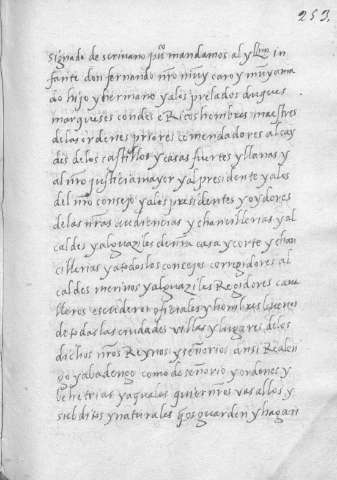 253.
signado de scrivano pu<sup>co</sup> mandamos al yll<sup>mo</sup> in
fante don fernando nr̃o muy caro y muy ama
do hijo y hermano y a los prelados duques
marqueses condes e Ricoshombres maestres
de las ordenes priores comendadores alcay
des de los castillos y casas fuertes y llanas y
al nr̃o justicia mayor y al presidente y a los
del nr̃o consejo y a los presidentes y oydores
de las nr̃as audiencias y chancillerias y al
caldes y alguaziles de nr̃a casa y corte y chan
cillerias y a todos los consejos corregidores al
caldes merinos y alguaziles Regidores cava
lleros escuderos officiales y hombres buenos
de todas las ciudades villas y lugares de los
dichos nr̃os Reynos y señorios ansi Realen
go y abadengo como de señorio y ordenes y
behetrias y a qualesquier nr̃os vasallos y
subditos y naturales q̃ os guarden y hagan